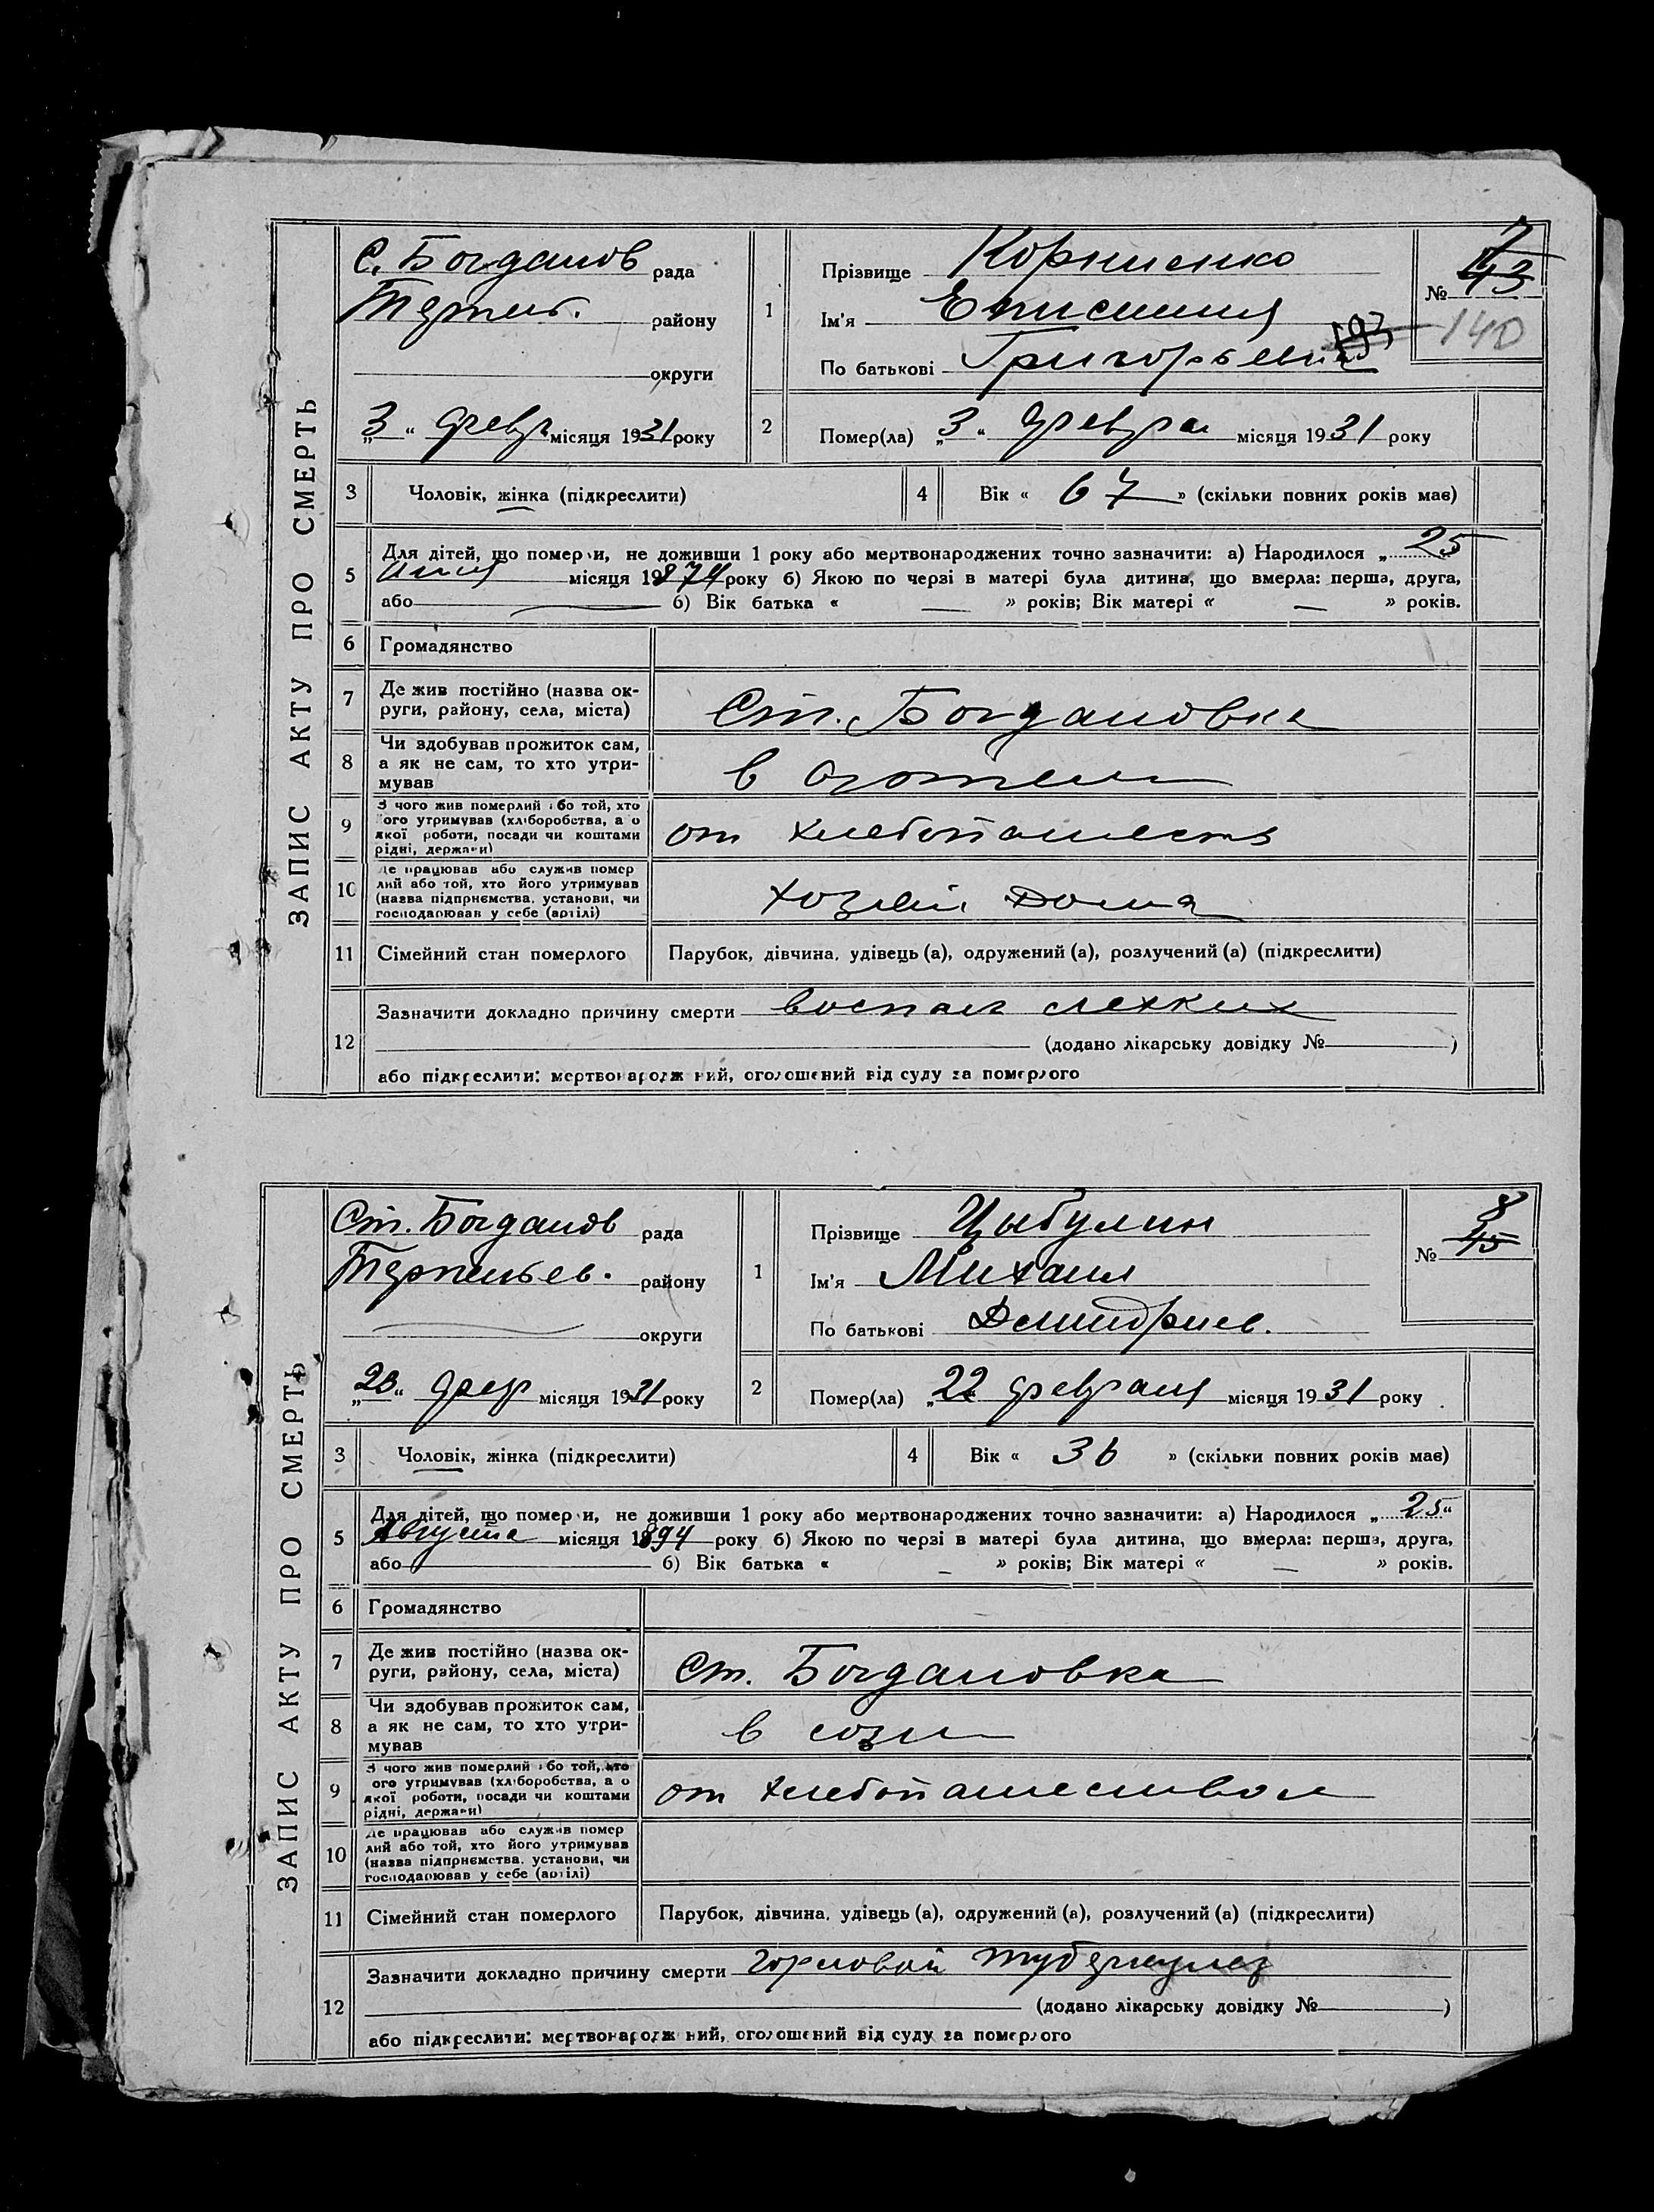 ЗАПИС АКТУ ПРО СМЕРТЬ
С. Богданов рада
району
округи
„3“ февр місяця 1931 року
1
Прізвище Корниенко
Ім'я
По батькові
№ 7
43
140
193
2
Помер(ла) „3“ февра місяця 1931 року
3 Чоловік, жінка (підкреслити)
4 Вік « 67 » (скільки повних років має)
5 Для дітей, що померли, не доживши 1 року або мертвонароджених точно зазначити: а) Народилося „ 25
місяця 1874 року б) Якою по черзі в матері була дитина, що вмерла: перша, друга,
або б) Вік батька « — » років; Вік матері « — » років.
6 Громадянство
7 Де жив постійно (назва ок-
руги, району, села, міста) Ст. Богдановка
8 Чи здобував прожиток сам,
а як не сам, то хто утри-
мував в
9 З чого жив померлий або той, хто
ого утримував (хліборобства, а о
якої роботи, посади чи коштами
рідні, держави) от хлебопашеств
10 Де працював або служив помер
лий або той, хто його утримував
(назва підприємства, установи, чи
господарював у себе (артілі) хозяй Дома
11 Сімейний стан померлого Парубок, дівчина, удівець (а), одружений (а), розлучений (а) (підкреслити)
12 Зазначити докладно причину смерти воспал легких
(додано лікарську довідку № )
або підкреслити: мертвонародж ний, оголошений від суду за померлого
ЗАПИС АКТУ ПРО СМЕРТЬ
Ст. Богданов рада
району
округи
„23“ февр місяця 1931 року
1
Прізвище Цыбулин
Ім'я Михаил
По батькові Дмитриев.
№ 8
45
2
Помер(ла) „22“ февраля місяця 1931 року
3 Чоловік, жінка (підкреслити)
4 Вік « 36 » (скільки повних років має)
5 Для дітей, що померли, не доживши 1 року або мертвонароджених точно зазначити: а) Народилося „ 25“
Августа місяця 1894 року б) Якою по черзі в матері була дитина, що вмерла: перша, друга,
або б) Вік батька « — » років; Вік матері « — » років.
6 Громадянство
7 Де жив постійно (назва ок-
руги, району, села, міста) Ст. Богдановка
8 Чи здобував прожиток сам,
а як не сам, то хто утри-
мував в созе
9 З чого жив померлий або той, хто
ого утримував (хліборобства, а о
якої роботи, посади чи коштами
рідні, держави) от хлебопашества
10 Де працював або служив помер
лий або той, хто його утримував
(назва підприємства, установи, чи
господарював у себе (артілі)
11 Сімейний стан померлого Парубок, дівчина, удівець (а), одружений (а), розлучений (а) (підкреслити)
12 Зазначити докладно причину смерти горловой туберкулез
(додано лікарську довідку № )
або підкреслити: мертвонародж ний, оголошений від суду за померлого